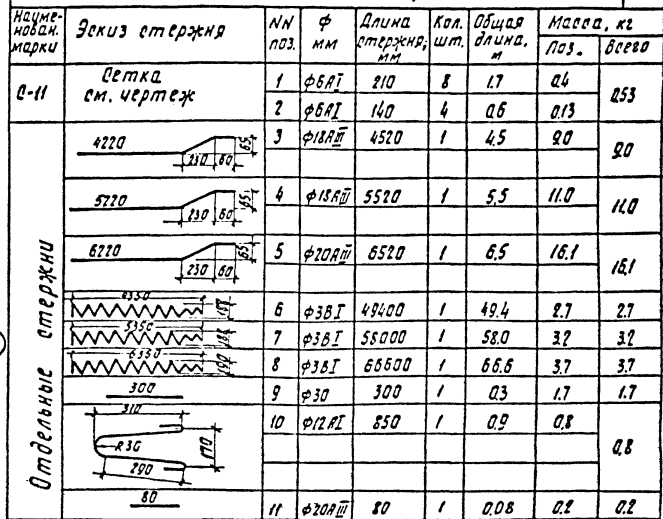 Науме-нован. марки | Эскиз стержня | NN поз. | ф мм | Длина стержня, мм | Кол. шт. | Общая длина, м | Масса, кг
Поз. | Всего
С-11 | Сетка см. чертеж | 1 | ф6АI | 210 | 8 | 1.7 | 0.4 | 0.53
2 | ф6АI | 140 | 4 | 0.6 | 0.13
Отдельные стержни
4220 230 60 65 | 3 | ф18АIII | 4520 | 1 | 4.5 | 9.0 | 9.0
5220 230 60 65 | 4 | ф18АIII | 5520 | 1 | 5,5 | 11.0 | 11.0
6220 230 60 65 | 5 | ф20АIII | 6520 | 1 | 6,5 | 16.1 | 16,1
4350 | 6 | ф3ВI | 49400 | 1 | 49.4 | 2.7 | 2.7
5350 | 7 | ф3ВI | 58000 | 1 | 58.0 | 3.2 | 3.2
6350 190 | 8 | ф3ВI | 66600 | 1 | 66.6 | 3.7 | 3.7
300 | 9 | ф30 | 300 | 1 | 0.3 | 1.7 | 1.7
310 R30 290 170 | 10 | ф12АI | 850 | 1 | 0.9 | 0,8 | 0,8
80 | 11 | ф20АIII | 80 | 1 | 0,08 | 0.2 | 0.2